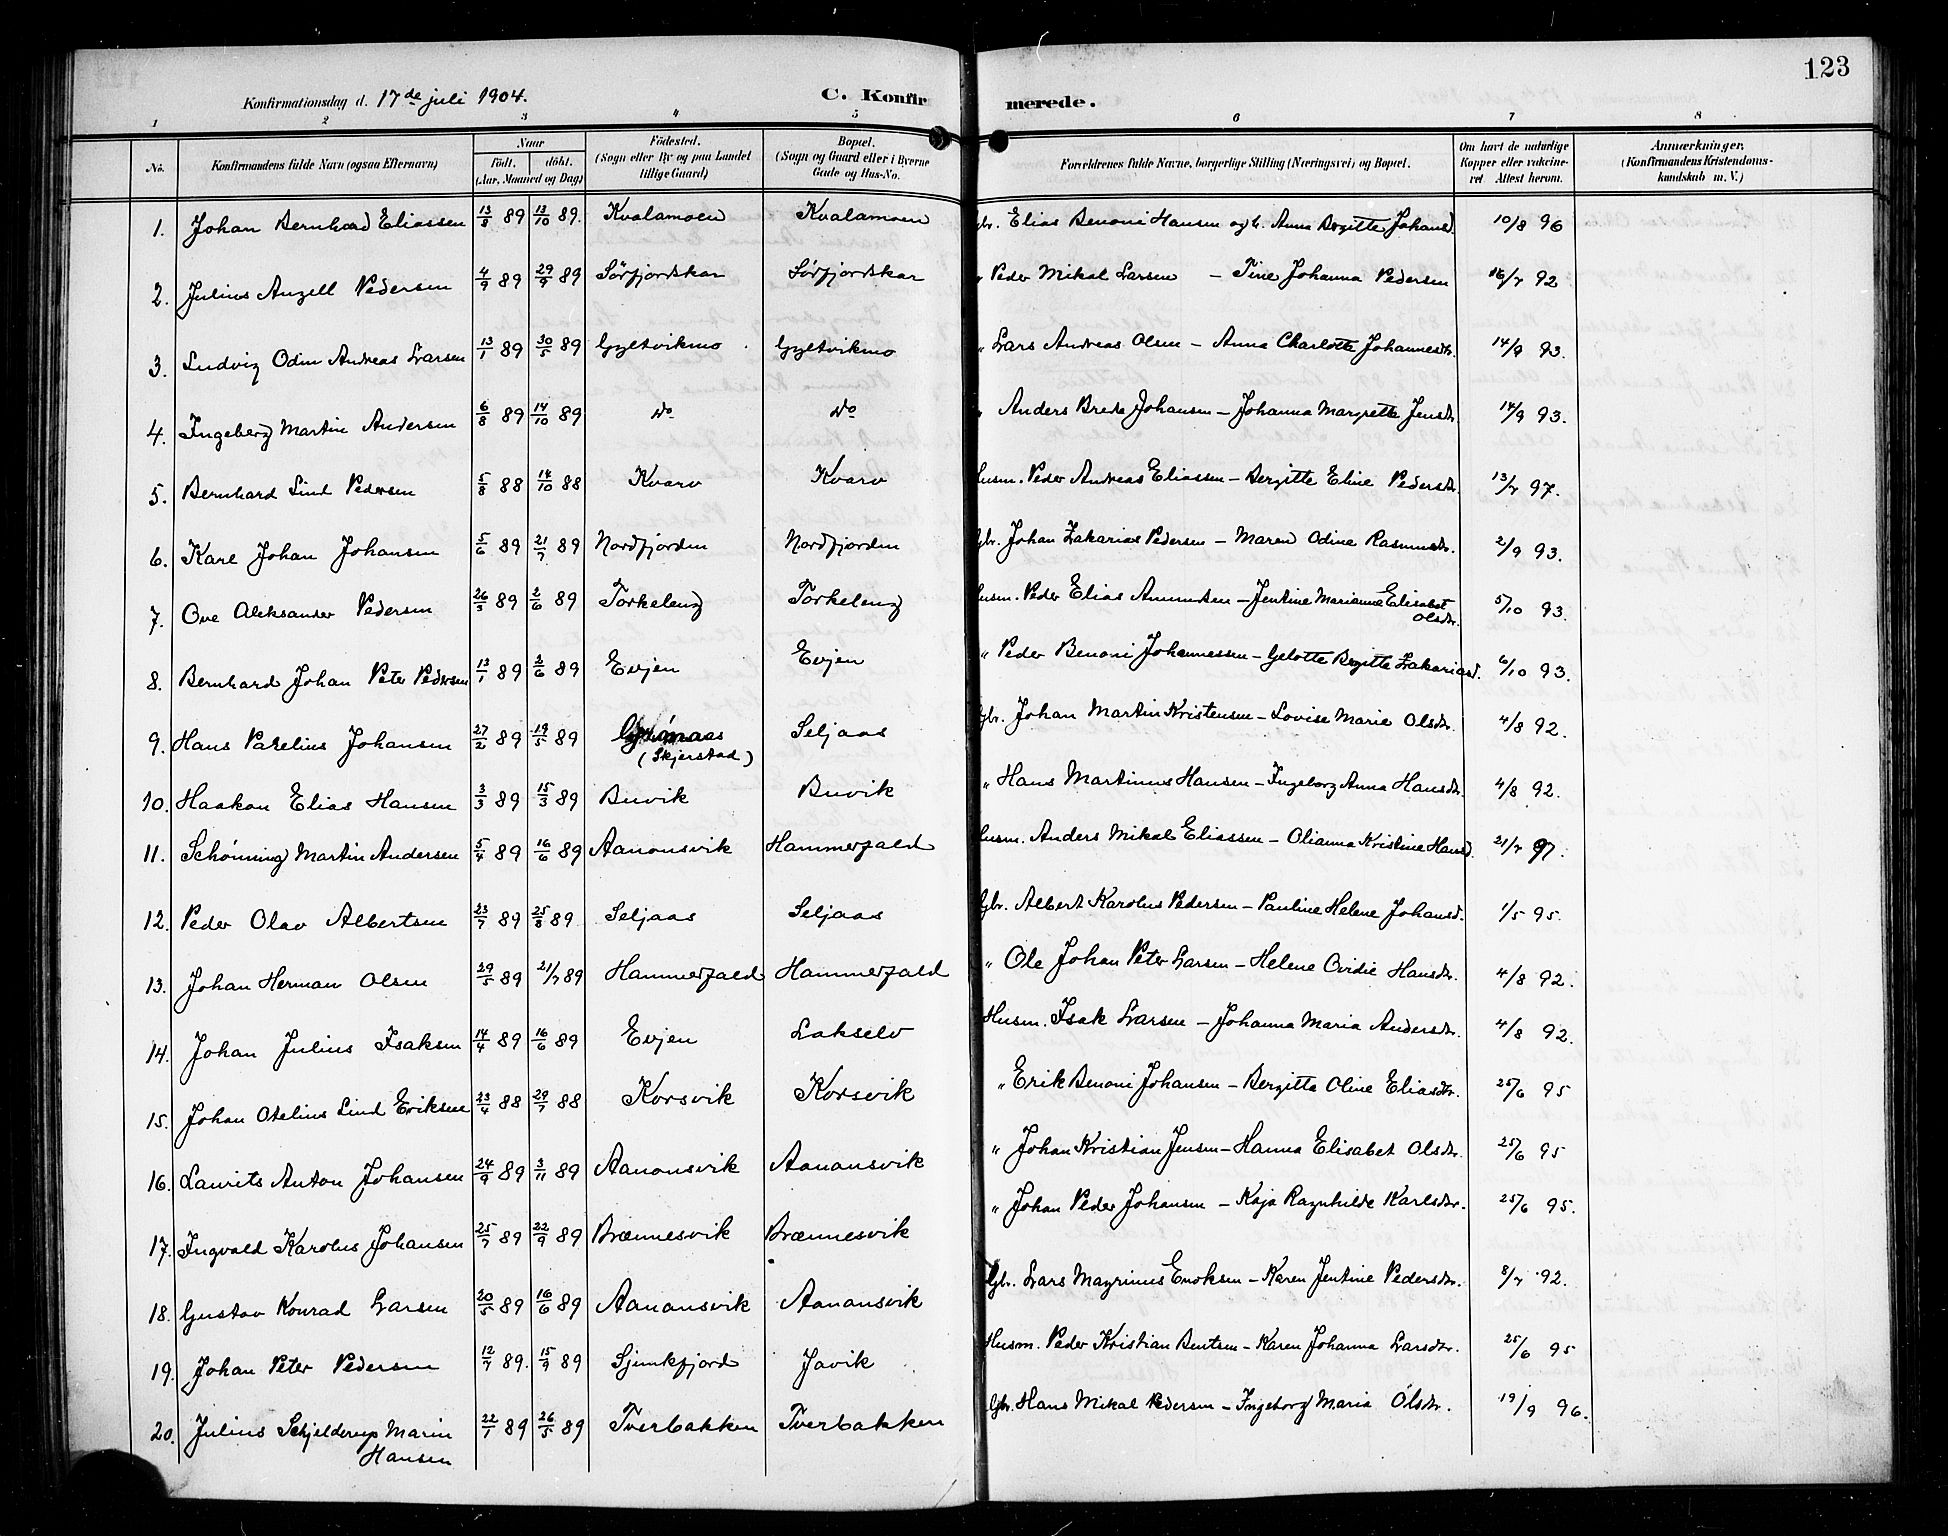 123
Konfirmationsdag d. 17de juli 1904.
C. Konfirmerede.
1 2 3 4 5 6 7 8
No. Konfirmandens fulde Navn (ogsaa Efternavn) Naar født. døbt. (Aar, Maaned og Dag) Fødested. (Sogn eller By og paa Landet tillige Gaard) Bopæl. (Sogn og Gaard eller i Byerne Gade og Hus-No. Forældrenes fulde Navne, borgerlige Stilling (Næringsvei) og Bopæl. Om havt de naturlige Kopper eller vaccineret. Attest herom. Anmærkninger. (Konfirmandens Kristendomskundskab m. V.)
1. Johan Bernhard Eliassen 13/8 89 13/10 89. Kvalamoen Kvalamoen Gbr. Elias Benoni Hansen og h. Anna Bergitte Johansd. 10/8 96
2. Julius Angell Pedersen 4/9 89 29/9 89 Sörfjordskar Sörfjordskar " Peder Mikal Larsen – Tine Johanna Pedersen 16/7 92
3. Ludvig Odin Andreas Larsen 13/1 89 30/5 89 Gyltvikmo Gyltvikmo " Lars Andreas Olsen – Anna Charlotte Johannesdtr. 14/9 93.
4. Ingeberg Martin Andersen 6/8 89 14/10 89 do do " Anders Brede Johansen – Johanna Margrette Jensdtr. 14/9 93.
5. Bernhard Lind Pedersen 5/8 88 14/10 88 Kvarv Kvarv Husm. Peder Andreas Eliassen – Bergitte Eline Pedersdtr. 13/7 97.
6. Karl Johan Johansen 5/6 89 21/7 89 Nordfjorden Nordfjorden Gbr. Johan Zakarias Pedersen – Maren Odine Rasmusdtr. 2/9 93.
7. Ove Aleksander Pedersen 26/3 89 2/6 89 Torkeleng Torkeleng Husm. Peder Elias Amundsen – Jentine Marianne Elisabet Olsdtr. 5/10 93.
8. Bernhard Johan Peter Pedersen 13/1 89 2/6 89 Evjen Evjen " Peder Benoni Johannessen – Gelotte Bergitte Zakariasd. 6/10 93.
9. Hans Parelius Johansen 27/2 89 19/5 89 (Skjerstad) Seljaas Gbr. Johan Martin Kristensen – Lovise Marie Olsdtr. 4/8 92.
10. Haakon Elias Hansen 3/3 89 15/3 89 Buvik Buvik " Hans Martinus Hansen – Ingeborg Anna Hansdtr. 4/8 92.
11. Schønning Martin Andersen 5/4 89 16/6 89 Aanonsvik Hammerfald Husm. Anders Mikal Eliassen – Olianna Kristine Hansd. 21/7 97.
12. Peder Olav Albertsen 23/7 89 25/8 89 Seljaas Seljaas Gbr. Albert Karolus Pedersen – Pauline Helene Johansd. 1/5 95.
13. Johan Herman Olsen 29/5 89 21/7 89 Hammerfald Hammerfald " Ole Johan Peter Larsen – Helene Ovidie Hansdtr. 4/8 92.
14. Johan Julius Isaksen 14/4 89 16/6 89 Evjen Lakselv Husm. Isak Larsen – Johanna Maria Andersdtr. 4/8 92.
15. Johan Otelius Lind Eriksen 23/4 88 29/7 88 Korsvik Korsvik " Erik Benoni Johansen – Bergitte Oline Eliasdtr. 25/6 95
16. Laurits Anton Johansen 24/9 89 3/11 89 Aanonsvik Aanonsvik " Johan Kristian Jensen – Hanna Elisabet Olsdtr. 25/6 95
17. Ingvald Karolus Johansen 25/7 89 22/9 89 Brænnesvik Brænnesvik " Johan Peder Johansen – Kaja Ragnhilde Karlsdtr. 25/6 95.
18. Gustav Konrad Larsen 20/5 89 16/6 89 Aanonsvik Aanonsvik Gbr. Lars Magrinus Enoksen – Karen Jentine Pedersdtr. 8/7 92.
19. Johan Peter Pedersen 12/7 89. 15/9 89 Sjunkfjord Javik Husm. Peder Kristian Bentsen – Karen Johanna Larsdtr. 25/6 95
20. Julius Schjelderup Marin Hansen 22/1 89 26/5 89 Tverbakken Tverbakken Gbr. Hans Mikal Pedersen – Ingeborg Maria Olsdtr. 19/9 96.